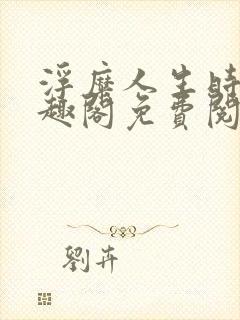 浮靡人生時
趣閣免費閱
劉卉